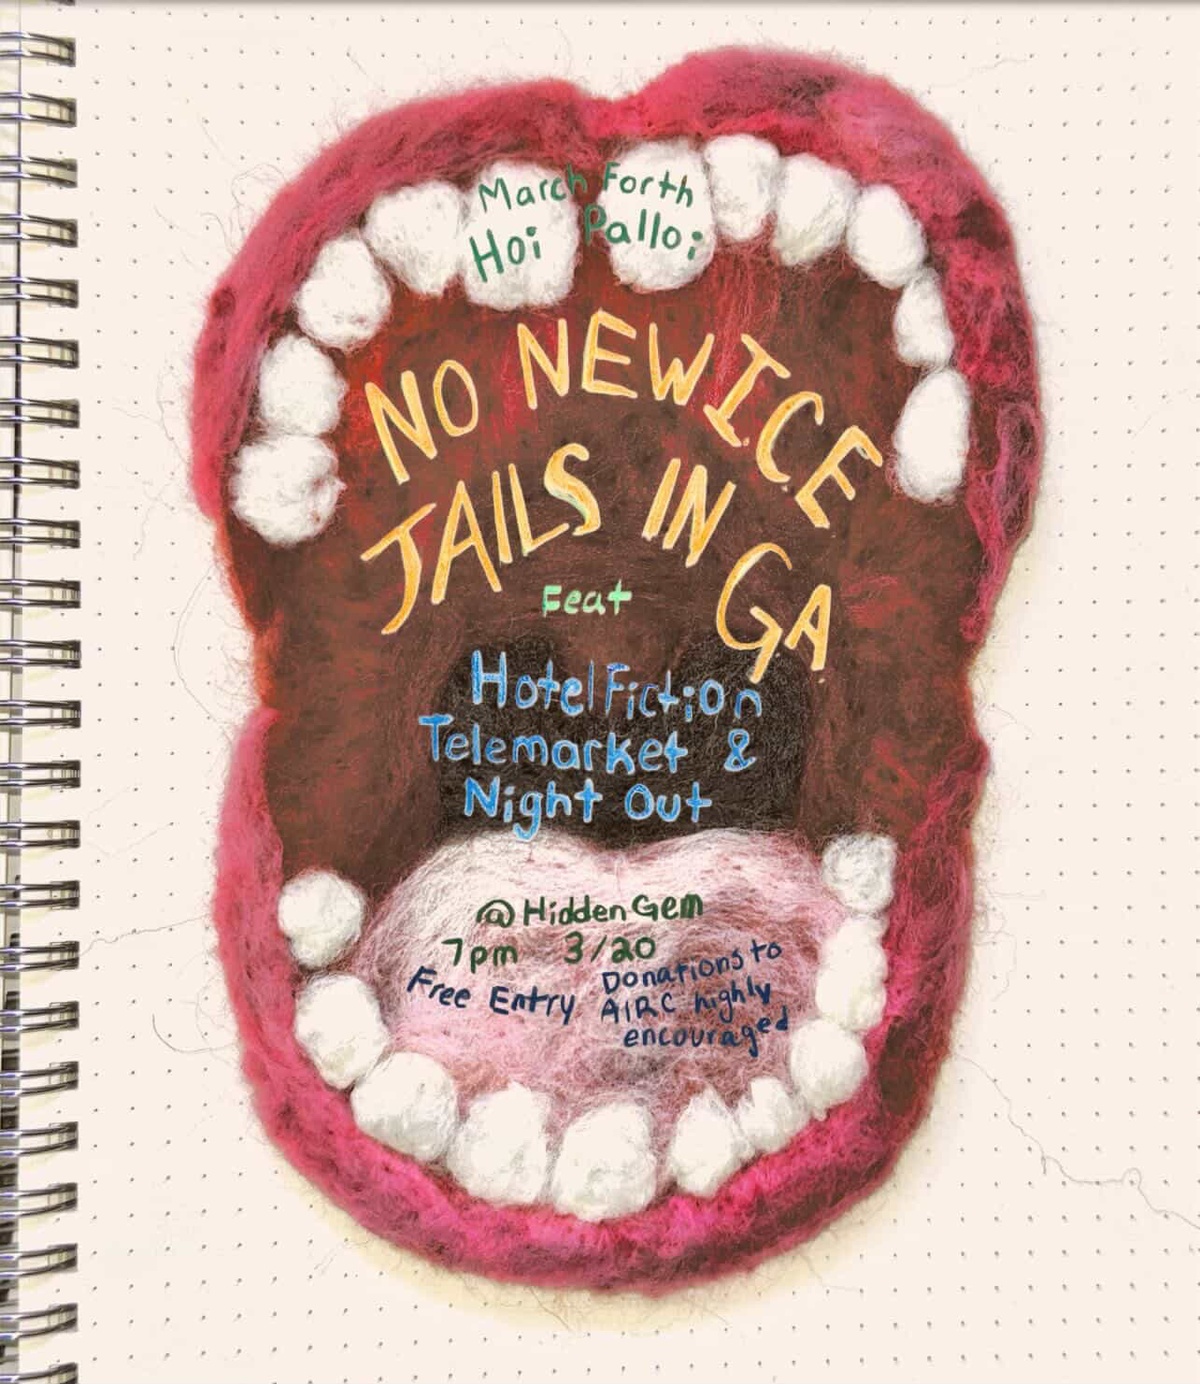 March Forth
Hoi Palloi
NO NEW I.C.E.
JAILS IN G.A.
Feat
Hotel Fiction
Telemarket &
Night Out
@ Hidden Gem
7pm 3/20
Free Entry
Donations to
AIRC highly
encouraged